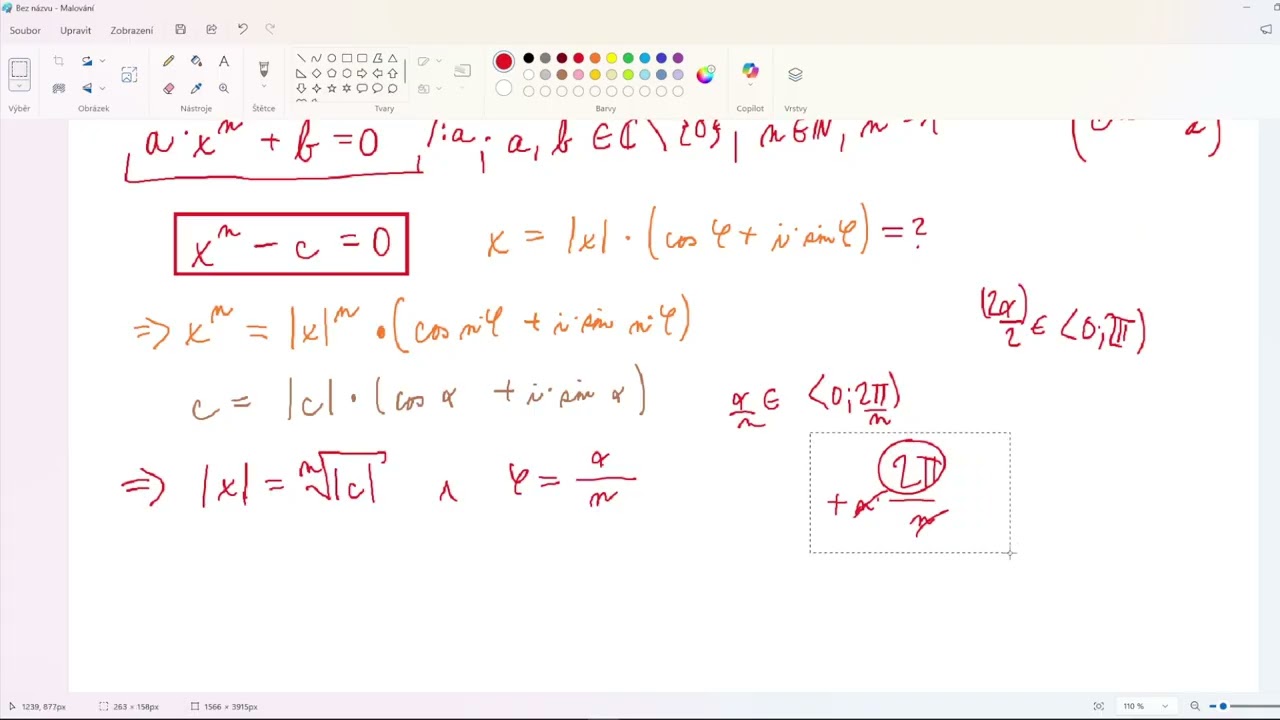 Bez názvu - Malování
Soubor Upravit Zobrazení
Výběr Obrázek Nástroje Štětce Tvary Barvy Copilot Vrstvy
a · x^n + b = 0 /:a ; a, b ∈ ℂ \ {0}, n ∈ ℕ,
x^n - c = 0 x = |x| · (cos φ + i · sin φ) = ?
⇒ x^n = |x|^n · (cos n·φ + i · sin n·φ) (2α)/2 ∈ <0;2π)
c = |c| · (cos α + i · sin α) α/n ∈ <0; 2π/n)
⇒ |x| = ⁿ√|c| ∧ φ = α/n + n · 2π/n
1239, 877px 263 × 158px 1566 × 3915px 110 %